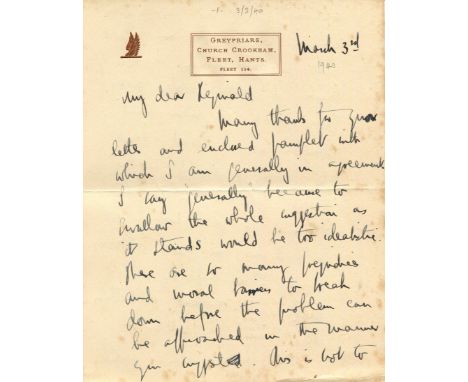 3/3/40
GREYFRIARS,
CHURCH CROOKHAM,
FLEET, HANTS.
FLEET 114.
March 3rd
1940
My dear Reginald
Many thanks for your
letter and enclosed pamplet with
which I am generally in agreement
I say 'generally' because to
swallow the whole suggestion as
it stands would be too idealistic.
There are so many prejudices
and moral barriers to break
down before the problem can
be approached in the manner
you suggest. This is not to